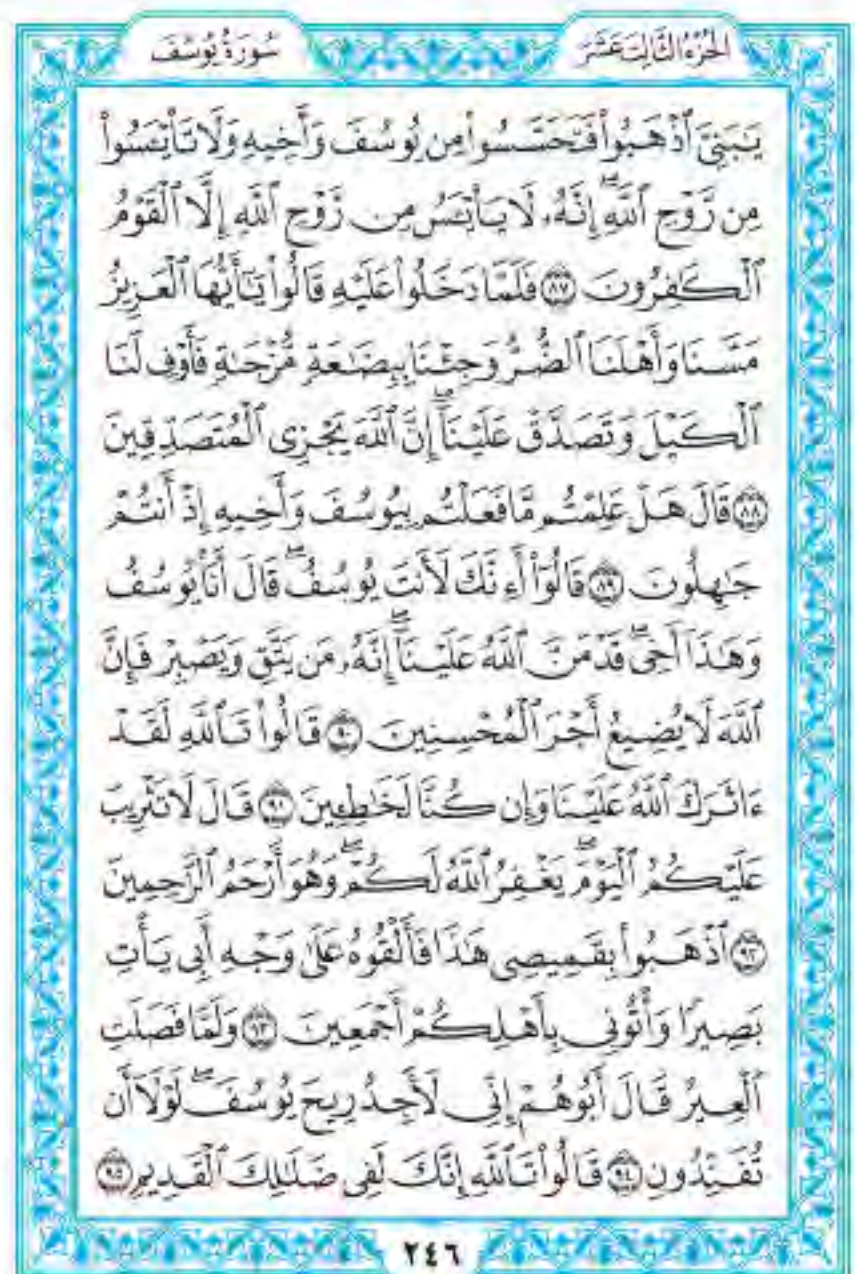 الجُزْءُ الثَّالِثَ عَشَرَ
سُورَةُ يُوسُفَ
يَٰبَنِىَّ ٱذْهَبُوا۟ فَتَحَسَّسُوا۟ مِن يُوسُفَ وَأَخِيهِ وَلَا تَا۟يْـَٔسُوا۟
مِن رَّوْحِ ٱللَّهِ ۖ إِنَّهُۥ لَا يَا۟يْـَٔسُ مِن رَّوْحِ ٱللَّهِ إِلَّا ٱلْقَوْمُ
ٱلْكَٰفِرُونَ ٨٧ فَلَمَّا دَخَلُوا۟ عَلَيْهِ قَالُوا۟ يَٰٓأَيُّهَا ٱلْعَزِيزُ
مَسَّنَا وَأَهْلَنَا ٱلضُّرُّ وَجِئْنَا بِبِضَٰعَةٍ مُّزْجَىٰةٍ فَأَوْفِ لَنَا
ٱلْكَيْلَ وَتَصَدَّقْ عَلَيْنَآ ۖ إِنَّ ٱللَّهَ يَجْزِى ٱلْمُتَصَدِّقِينَ
٨٨ قَالَ هَلْ عَلِمْتُم مَّا فَعَلْتُم بِيُوسُفَ وَأَخِيهِ إِذْ أَنتُمْ
جَٰهِلُونَ ٨٩ قَالُوٓا۟ أَءِنَّكَ لَأَنتَ يُوسُفُ ۖ قَالَ أَنَا۠ يُوسُفُ
وَهَٰذَآ أَخِى ۖ قَدْ مَنَّ ٱللَّهُ عَلَيْنَآ ۖ إِنَّهُۥ مَن يَتَّقِ وَيَصْبِرْ فَإِنَّ
ٱللَّهَ لَا يُضِيعُ أَجْرَ ٱلْمُحْسِنِينَ ٩٠ قَالُوا۟ تَٱللَّهِ لَقَدْ
ءَاثَرَكَ ٱللَّهُ عَلَيْنَا وَإِن كُنَّا لَخَٰطِـِٔينَ ٩١ قَالَ لَا تَثْرِيبَ
عَلَيْكُمُ ٱلْيَوْمَ ۖ يَغْفِرُ ٱللَّهُ لَكُمْ ۖ وَهُوَ أَرْحَمُ ٱلرَّٰحِمِينَ
٩٢ ٱذْهَبُوا۟ بِقَمِيصِى هَٰذَا فَأَلْقُوهُ عَلَىٰ وَجْهِ أَبِى يَأْتِ
بَصِيرًا وَأْتُونِى بِأَهْلِكُمْ أَجْمَعِينَ ٩٣ وَلَمَّا فَصَلَتِ
ٱلْعِيرُ قَالَ أَبُوهُمْ إِنِّى لَأَجِدُ رِيحَ يُوسُفَ ۖ لَوْلَآ أَن
تُفَنِّدُونِ ٩٤ قَالُوا۟ تَٱللَّهِ إِنَّكَ لَفِى ضَلَٰلِكَ ٱلْقَدِيمِ ٩٥
٢٤٦